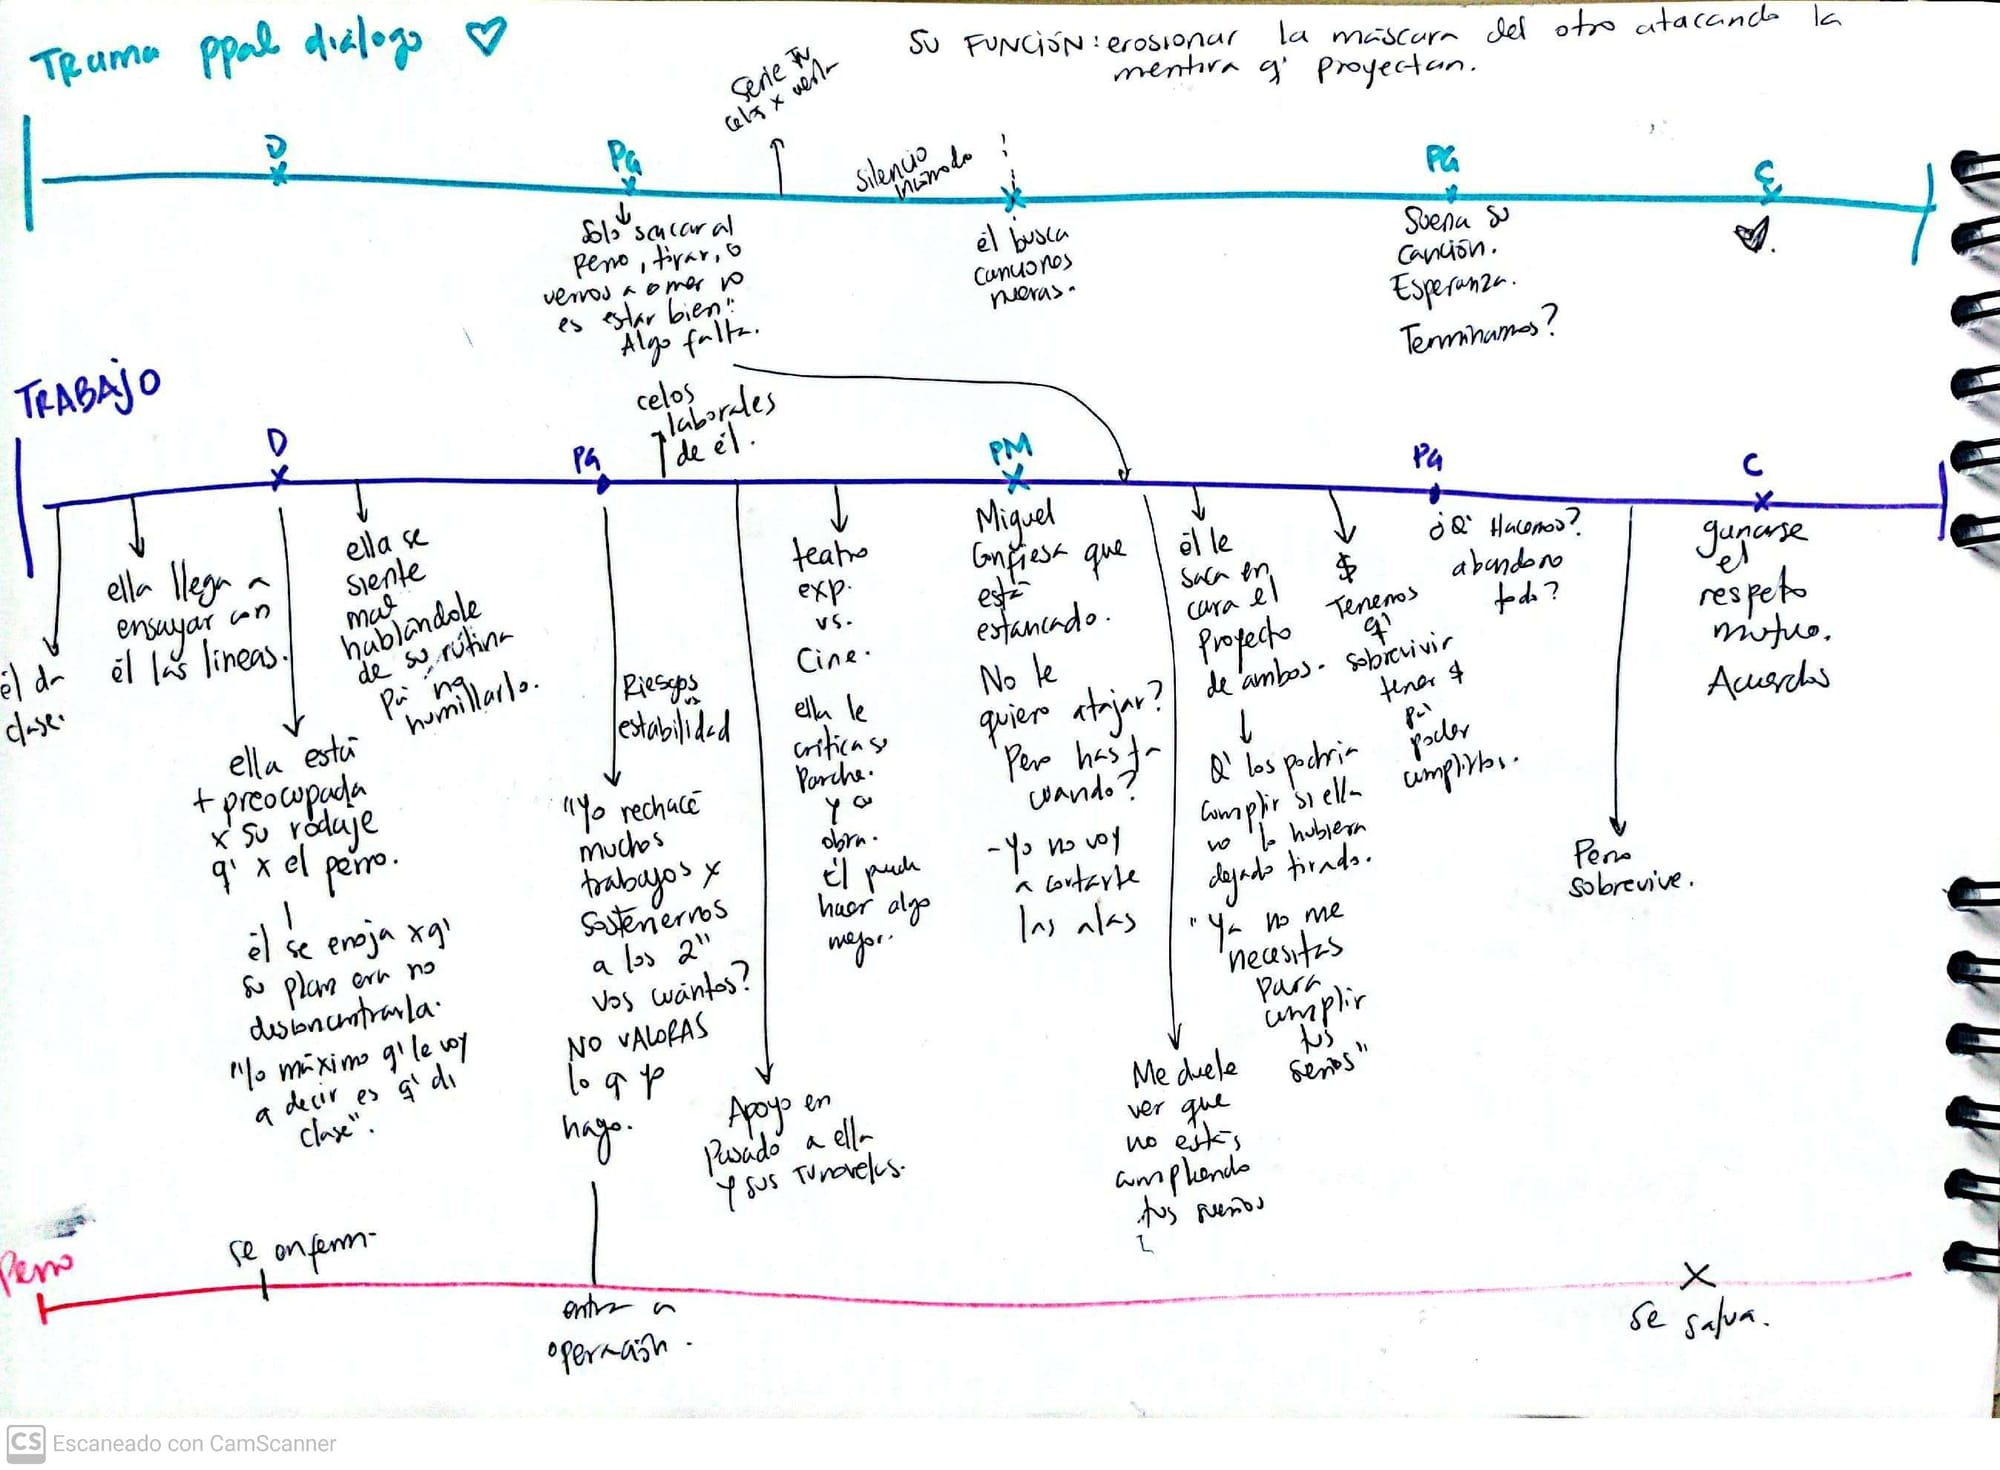 Trama ppal diálogo ♡
SU FUNCIÓN: erosionar la máscara del otro atacando la
mentira q' proyectan.
Serie TV
celos x verla
D
PG
silencio
incómodo
PG
Solo sacar al
perro, tirar, o
vernos a comer no
es estar bien".
Algo falta.
él busca
canciones
nuevas.
Suena su
canción.
Esperanza.
Terminamos?
TRABAJO
celos
laborales
de él.
D
PG
PM
PG
C
él da
clase.
ella llega a
ensayar con
él las líneas.
ella está
+ preocupada
x su rodaje
q' x el perro.
él se enoja xq'
su plan era no
desconcentrarla.
"lo máximo q' le voy
a decir es q' di
clase".
ella se
siente
mal
hablándole
de su rutina
pa' no
humillarlo.
Riesgos
vs
estabilidad
"Yo rechacé
muchos
trabajos x
sostenernos
a los 2"
vos cuántos?
NO VALORAS
lo q yo
hago.
Apoyo en
pasado a ella
y sus TVnovelas.
teatro
exp.
vs.
Cine.
ella le
critica su
parche.
y a
obra.
Él puede
hacer algo
mejor.
Miguel
Confiesa que
está
estancado.
No te
quiero atajar?
Pero hasta
cuando?
- Yo no voy
a cortarte
las alas
Me duele
ver que
no estás
cumpliendo
tus sueños
él le
saca en
cara el
proyecto
de ambos.
Q' los podría
cumplir si ella
no lo hubiera
dejado tirado.
"Ya no me
necesitas
para
cumplir
tus
sueños"
$
Tenemos
q'
sobrevivir
tener $
pa'
poder
cumplirlos.
¿Q' Hacemos?
abandono
todo?
Perro
sobrevive.
ganarse
el
respeto
mutuo.
Acuerdos
Perro
se enferma
entra a
operación.
se salva.
CS Escaneado con CamScanner